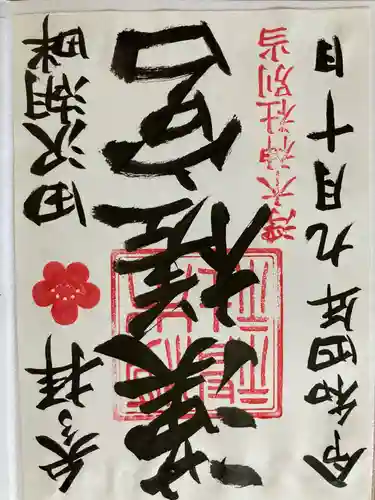 奉拝
田沢湖畔
漢槎宮
浮木神社別当
令和四年九月十日